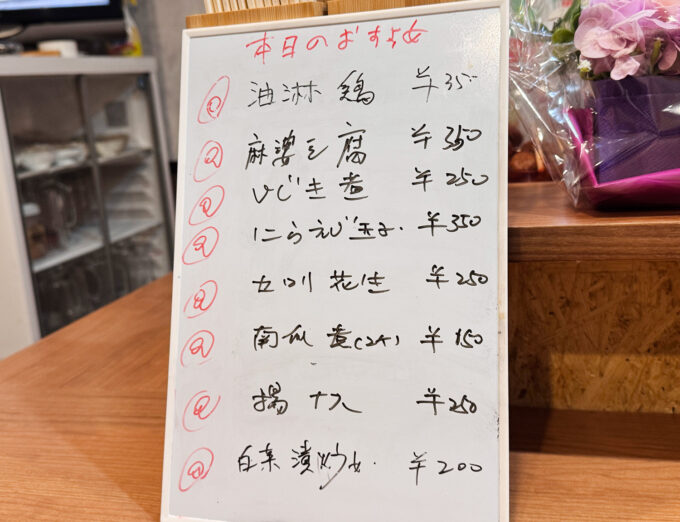 本日のおすすめ
油淋鶏 ¥350
麻婆豆腐 ¥350
ひじき煮 ¥250
にらえび玉子. ¥350
五口刂花生 ¥250
南瓜煮(2ヶ) ¥150
揚ナス ¥250
白菜漬炒め. ¥200